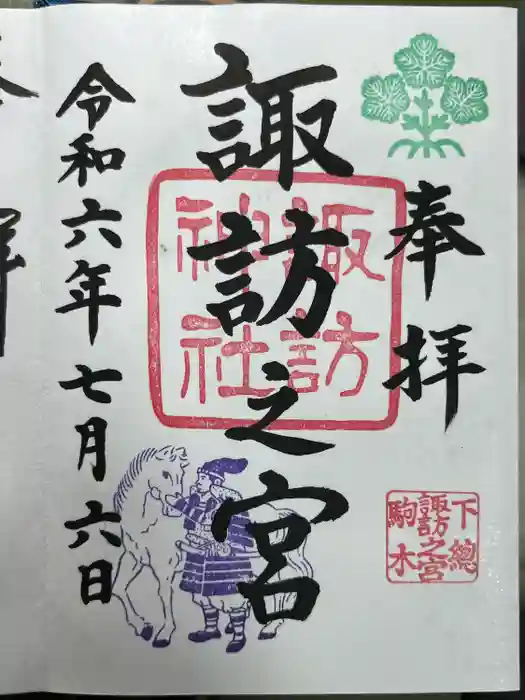 奉拝
諏訪之宮
令和六年七月六日
諏訪
神社
下總
諏訪之宮
駒木